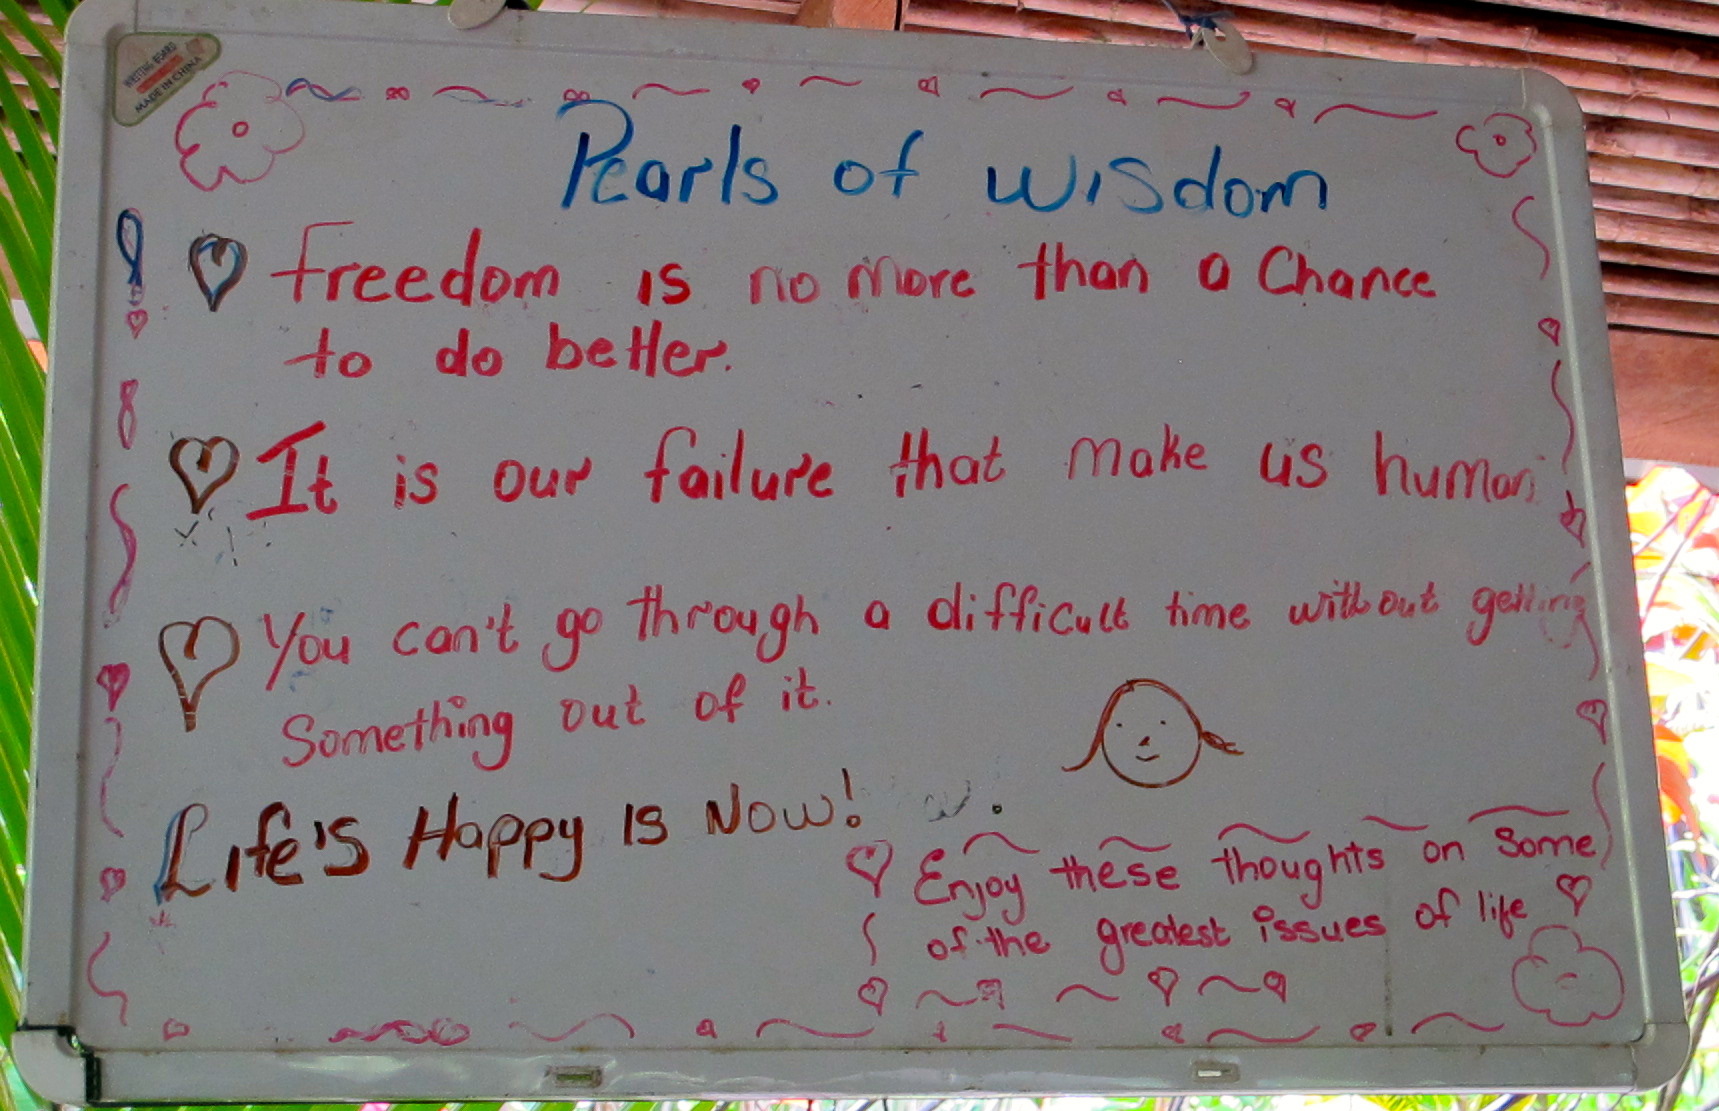 WRITING BOARD
MADE IN CHINA
Pearls of Wisdom
Freedom is no more than a Chance
to do better.
It is our failure that make us human
You can't go through a difficult time without getting
Something out of it.
Life's Happy is Now!
Enjoy these thoughts on some
of the greatest issues of life